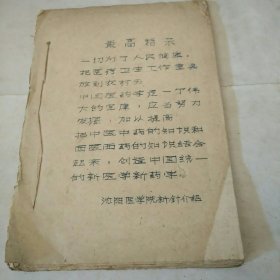 最高指示
一切为了人民健康。
把医疗卫生工作重点
放到农村去
中国医药学是一个伟
大的宝库，应当努力
发掘，加以提高
把中医中药的知识和
西医西药的知识结合
起来，创造中国统一
的新医学新药学。
沈阳医学院新针介绍